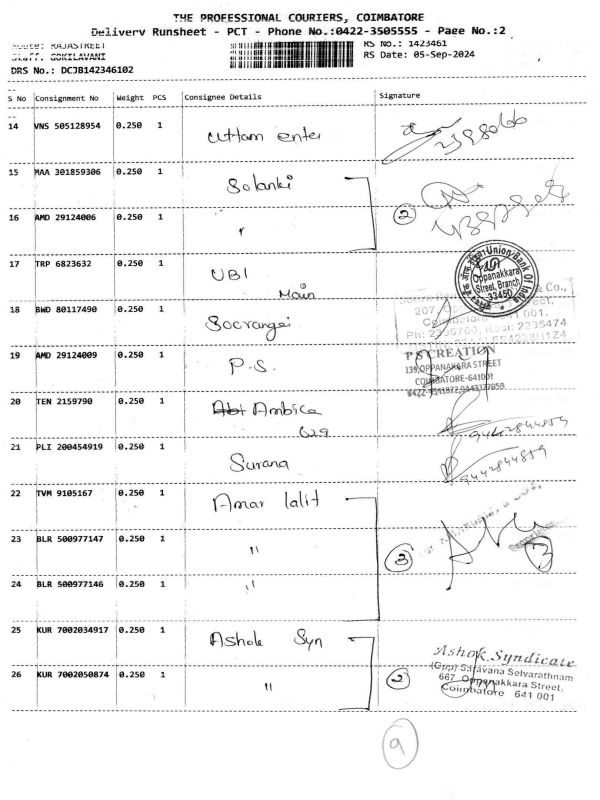 THE PROFESSIONAL COURIERS, COIMBATORE
Delivery Runsheet - PCT - Phone No.:0422-3505555 - Page No.:2
Route: RAJASTREET
RS No.: 1423461
Staff: GOKILAVANI
RS Date: 05-Sep-2024
DRS No.: DCJB142346102
S No Consignment No Weight PCS Consignee Details Signature
14 VNS 505128954 0.250 1 Uttam enter
15 MAA 301859306 0.250 1 Solanki
16 AMD 29124006 0.250 1 " 2
17 TRP 6823632 0.250 1 UBI Main
Union Bank Of India
Oppanakkara
Street, Branch
18 BWD 80117490 0.250 1
& Co.,
207,
001.
19 AMD 29124009 0.250 1 P.S.
P S CREATION
139, OPPANAKARA STREET
COIMBATORE-641001
20 TEN 2159790 0.250 1 Ambica
9442844859
21 PLI 200454919 0.250 1 Surana
9442844859
22 TVM 9105167 0.250 1 Amar lalit
23 BLR 500977147 0.250 1 " 3
24 BLR 500977146 0.250 1 "
25 KUR 7002034917 0.250 1 Ashok Syn
26 KUR 7002050874 0.250 1 " 2
Ashok Syndicate
(Opp) Saravana Selvarathnam
667, Oppanakkara Street,
Coimbatore 641 001
9